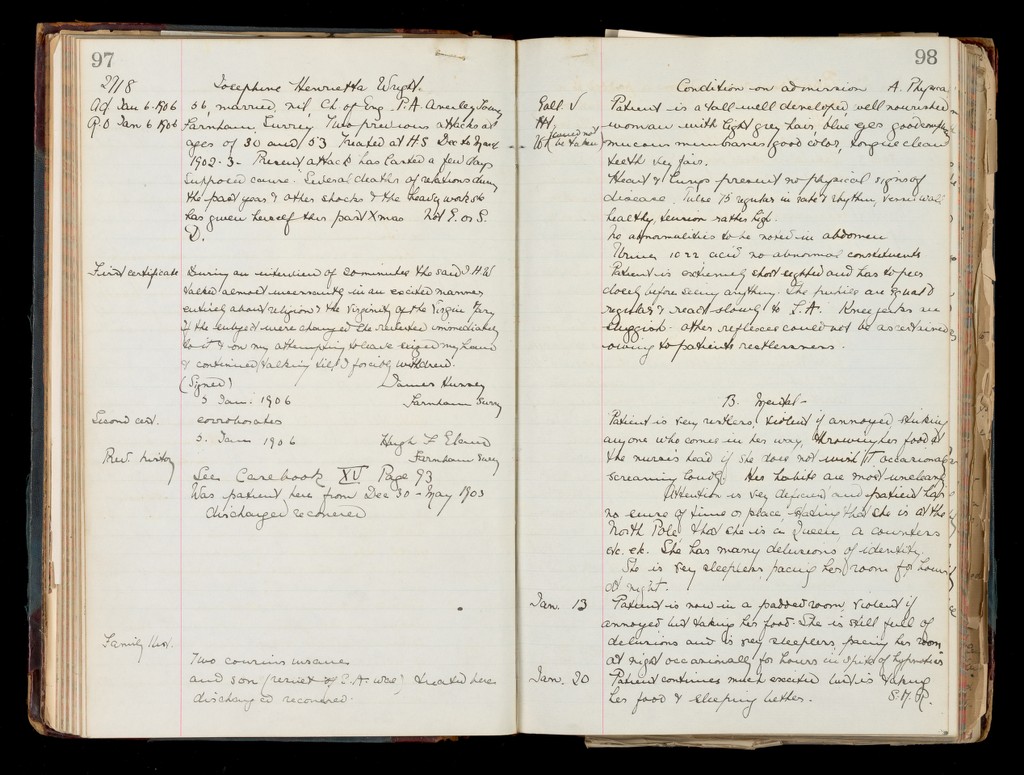 97
2718
Josephine Henrietta Wright.
Ad Jan 6. 1906
R.O Jan 6 1906
56, married, nil Ch. of Eng. P.A.
Farnham, Surrey Two previous attacks at
ages of 30 and 53 Treated at H.S Dec to
1902-3- Present attack has lasted a few days
Supposed cause: Several deaths of relations during
the past year & other shocks & the heavy work she
has given herself this past Xmas Not E. or S.
D.
First certificate
During an interview of 20 minutes the said J. H. W
talked almost incessantly in an excited manner
entirely about religion & the Virginity of the Virgin Mary
If the subject were changed she reverted immediately
to it & on my attempting to leave seized my hand
& continued talking till I forcibly withdrew.
(Signed) James Hussey
5 Jan. 1906 Farnham Surrey
Second cert.
corroborates
5. Jan 1906 Hugh F
Farnham Surrey
Prev. history
See Casebook XV Page 93
Was patient here from Dec 30 - May 1903
discharged recovered
Family Hist.
Two cousins insane
and son treated here
discharged recovered.
98
Condition on admission A. Physical
Patient is a tall well developed, well nourished
woman with light grey hair, blue eyes good
mucous membranes good color, tongue clean
teeth very fair.
Heart & Lungs present no physical signs of
disease. Pulse 75 regular in rate & rhythm, vessel wall
healthy, tension rather high.
No abnormalities to be noted in abdomen
Urine 1022 acid no abnormal constituents
Patient is extremely short sighted and has to peer
closely before seeing anything. She pupils are equal &
regular & react slowly to L.A. Knee jerks are
sluggish. other reflexes could not be ascertained
owing to patients restlessness.
Ht
Wt
cannot
be taken
B. Mental-
Patient is very restless, violent if annoyed striking
anyone who comes in her way, throwing her food at
the nurse's head if she does not wish it occasionally
screaming loudly. Her habits are most uncleanly
Attention is very deficient and patient has
no sense of time or place, stating that she is at the
North Pole, & that she is a Queen, a countess
etc. etc. She has many delusions of identity.
She is very sleepless, pacing her room for hours
at night.
Jan. 13
Patient is now in a padded room, violent if
annoyed but taking her food. She is still full of
delusions and is very sleepless, pacing her room
at night occasionally for hours in spite of hypnotics
Jan. 20
Patient continues much excited but is taking
her food & sleeping better. S.H.R.